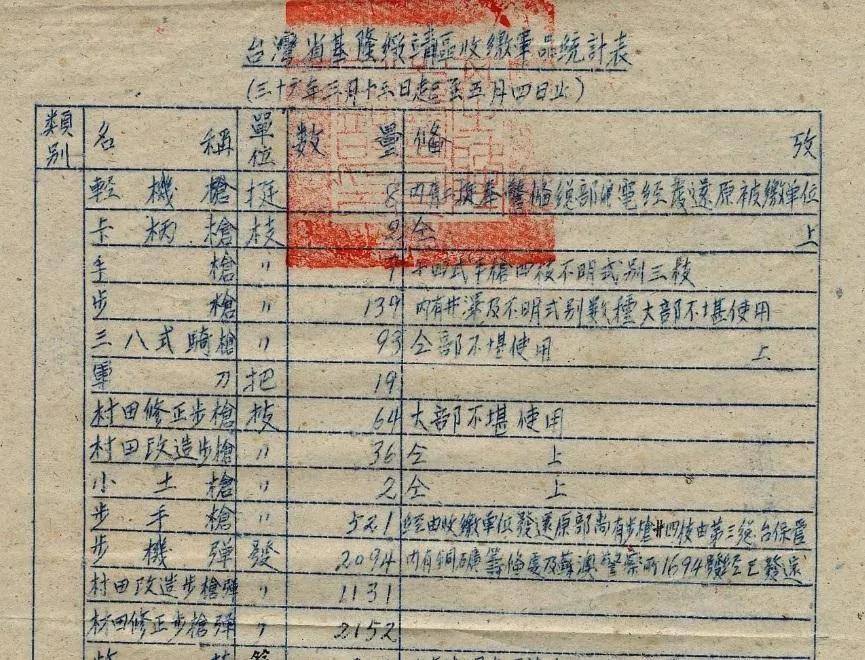 台灣省基隆綏靖區收繳軍品統計表
(三十六年三月十三日起至五月四日止)
類別 名稱 單位 數量 備攷
輕機槍 挺 8 內有 挺奉警備總部 電經發還原被繳單位
卡柄槍 枝 2 仝上
手槍 〃 7 十四式手槍四枝不明式別三枝
步槍 〃 139 內有井澤及不明式別數種大部不堪使用
三八式騎槍 〃 93 仝部不堪使用 上
軍刀 把 19
村田修正步槍 枝 64 大部不堪使用
村田改造步槍 〃 36 仝上
小土槍 〃 2 仝上
步手槍 〃 521 經由收繳單位發還原部尚有步槍廿四枝由第三 台保管
步機彈 發 2094 內有銅礦籌備處及蘇澳警察所1694發經已發還
村田改造步槍彈 〃 1131
村田修正步槍彈 〃 2152